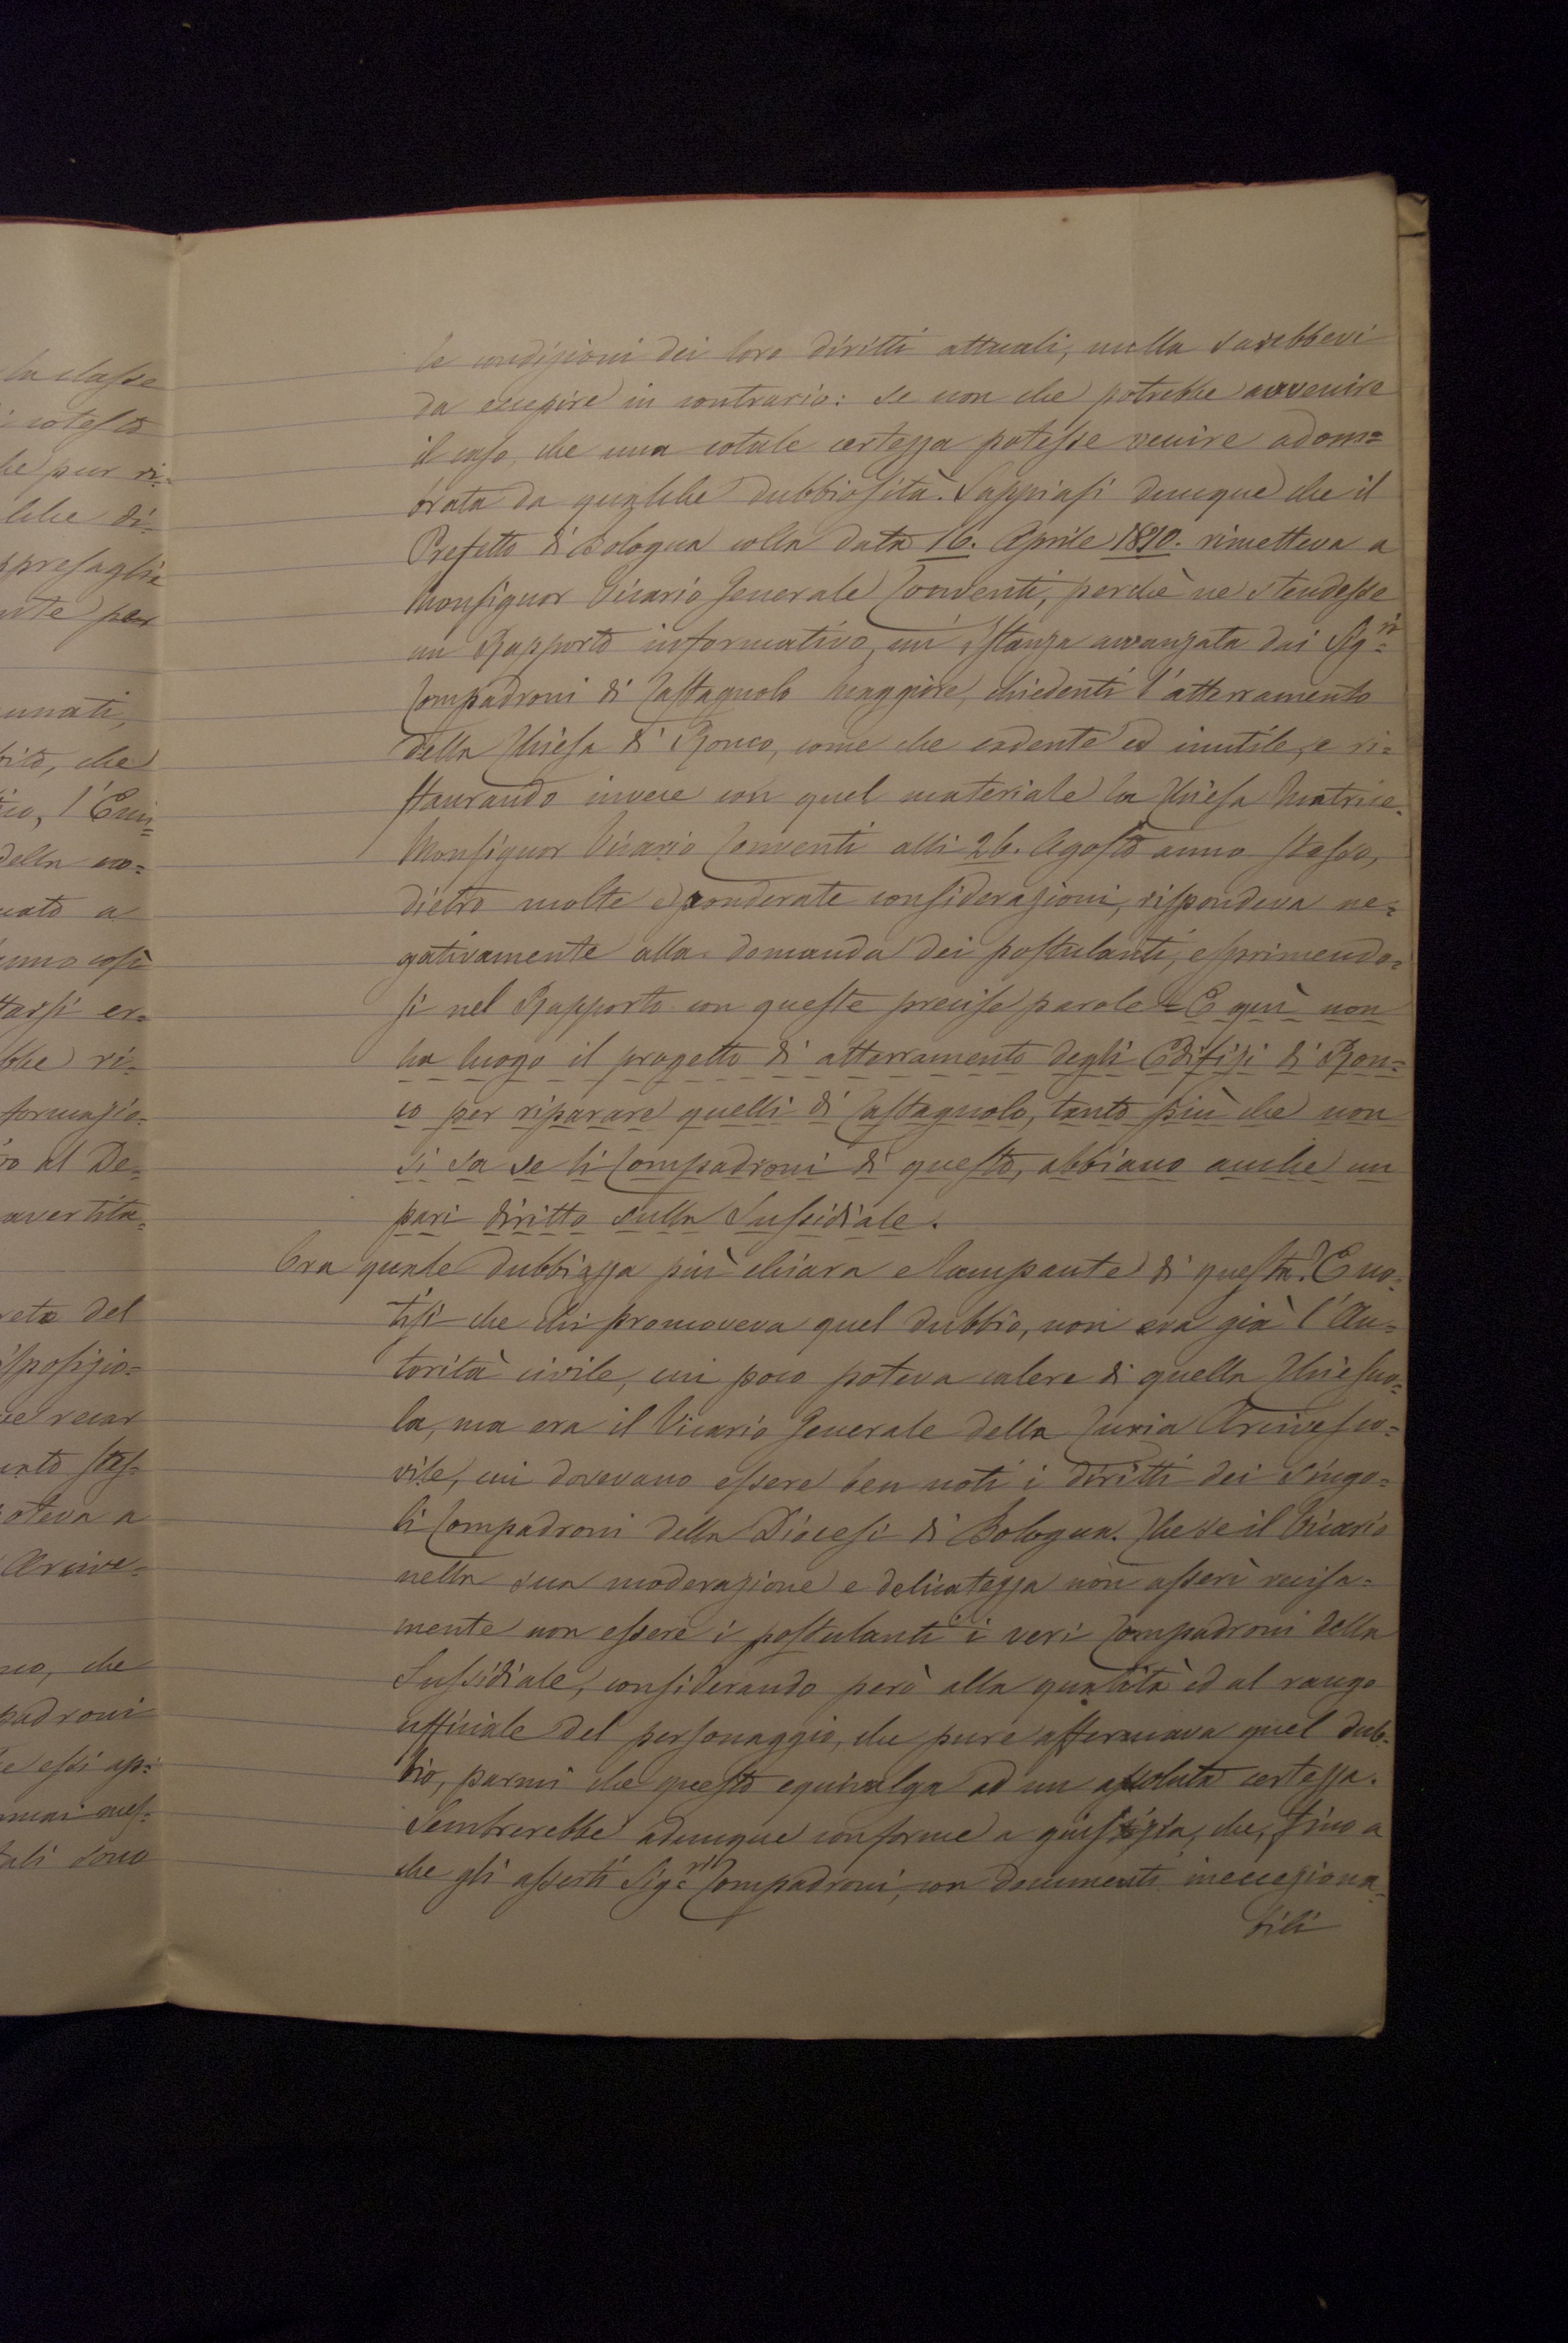 la classe
i cotesto
he pur ri=
lche di=
ppresaglie
nte per
unati,
bito, che
l'Emi=
della no=
cato a
anno così
tarsi er=
bbe ri=
formazio=
ro al De=
avertita=
reto del
isposizio=
ue recar
ento stes=
oteva a
Arcive=
no, che
padroni
e essi ap=
tali sono
le condizioni dei loro diritti attuali, nulla sarebbevi
da eccepire in contrario: se non che potrebbe avvenire
il caso, che una cotale certezza potesse venire adom=
brata da qualche dubbiosità. Sappiasi dunque che il
Prefetto di Bologna colla data 16. Aprile 1810. rimetteva a
Monsignor Vicario Generale Conventi, perchè ne stendesse
un Rapporto informativo, un'Istanza avvanzata dai Sig.ri
Compadroni di Castagnolo maggiore, chiedenti l'atterramento
della Chiesa di Ronco, come che cadente ed inutile, e ri=
staurando invece con quel materiale la Chiesa Matrice.
Monsignor Vicario Conventi alli 26. Agosto anno stesso,
dietro molte e ponderate considerazioni, rispondeva ne=
gativamente alla domanda dei postulanti, esprimendo=
si nel Rapporto con queste precise parole = E quì non
ha luogo il progetto di atterramento degli Edifizi di Ron=
co per riparare quelli di Castagnolo, tanto più che non
si sa se li Compadroni di questo, abbiano anche un
pari diritto sulla Sussidiale.
Ora quale dubbiezza più chiara e lampante di questa? E no=
tisi che chi promoveva quel dubbio, non era già l'Au=
torità civile, cui poco poteva calere di quella Chiesuo=
la, ma era il Vicario Generale della Curia Arcivesco=
vile, cui dovevano essere ben noti i diritti dei singo=
li Compadroni della Diocesi di Bologna. Che se il Vicario
nella sua moderazione e delicatezza non asserì recisa=
mente non essere i postulanti i veri Compadroni della
Sussidiale, considerando però alla qualità ed al rango
ufficiale del personaggio, che pure affermava quel dub=
bio, parmi che questo equivalga ad un assoluta certezza.
Sembrerebbe adunque conforme a giustizia, che, fino a
che gli asserti Sig.ri Compadroni, con documenti inecceziona=
bili